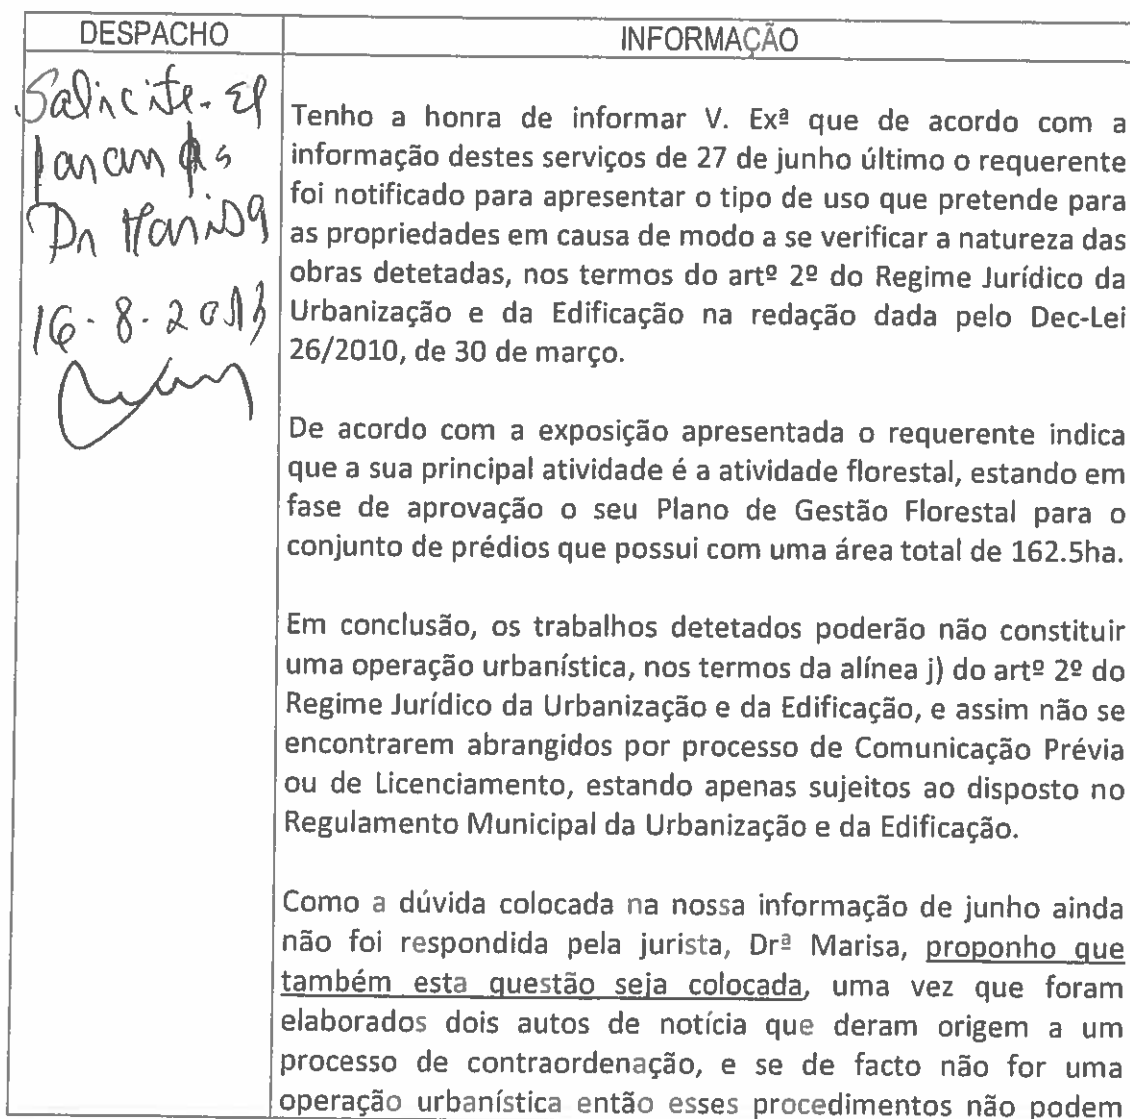 DESPACHO
INFORMAÇÃO
Solicite-se
parecer às
Drª Marisa
16-8-2013
Tenho a honra de informar V. Exª que de acordo com a
informação destes serviços de 27 de junho último o requerente
foi notificado para apresentar o tipo de uso que pretende para
as propriedades em causa de modo a se verificar a natureza das
obras detetadas, nos termos do artº 2º do Regime Jurídico da
Urbanização e da Edificação na redação dada pelo Dec-Lei
26/2010, de 30 de março.
De acordo com a exposição apresentada o requerente indica
que a sua principal atividade é a atividade florestal, estando em
fase de aprovação o seu Plano de Gestão Florestal para o
conjunto de prédios que possui com uma área total de 162.5ha.
Em conclusão, os trabalhos detetados poderão não constituir
uma operação urbanística, nos termos da alínea j) do artº 2º do
Regime Jurídico da Urbanização e da Edificação, e assim não se
encontrarem abrangidos por processo de Comunicação Prévia
ou de Licenciamento, estando apenas sujeitos ao disposto no
Regulamento Municipal da Urbanização e da Edificação.
Como a dúvida colocada na nossa informação de junho ainda
não foi respondida pela jurista, Drª Marisa, proponho que
também esta questão seja colocada, uma vez que foram
elaborados dois autos de notícia que deram origem a um
processo de contraordenação, e se de facto não for uma
operação urbanística então esses procedimentos não podem